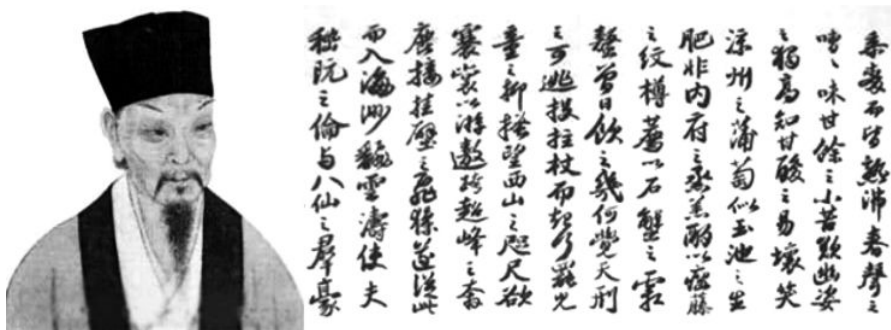 黍麥而皆熟沸春聲之
嘈〻味甘餘之小苦歎幽姿
之獨高知甘酸之易壞笑
涼州之蒲萄似玉池之生
肥非内府之烝羔酌以癭藤
之紋樽薦以石蟹之霜
螯曾日飲之幾何覺天刑
之可逃投拄杖而起行罷兒
童之抑搔望西山之咫尺欲
褰裳以游遨跨超峰之奔
鹿接挂壁之飛猱遂從此
而入海渺飜雲濤使夫
嵇阮之倫与八仙之羣豪